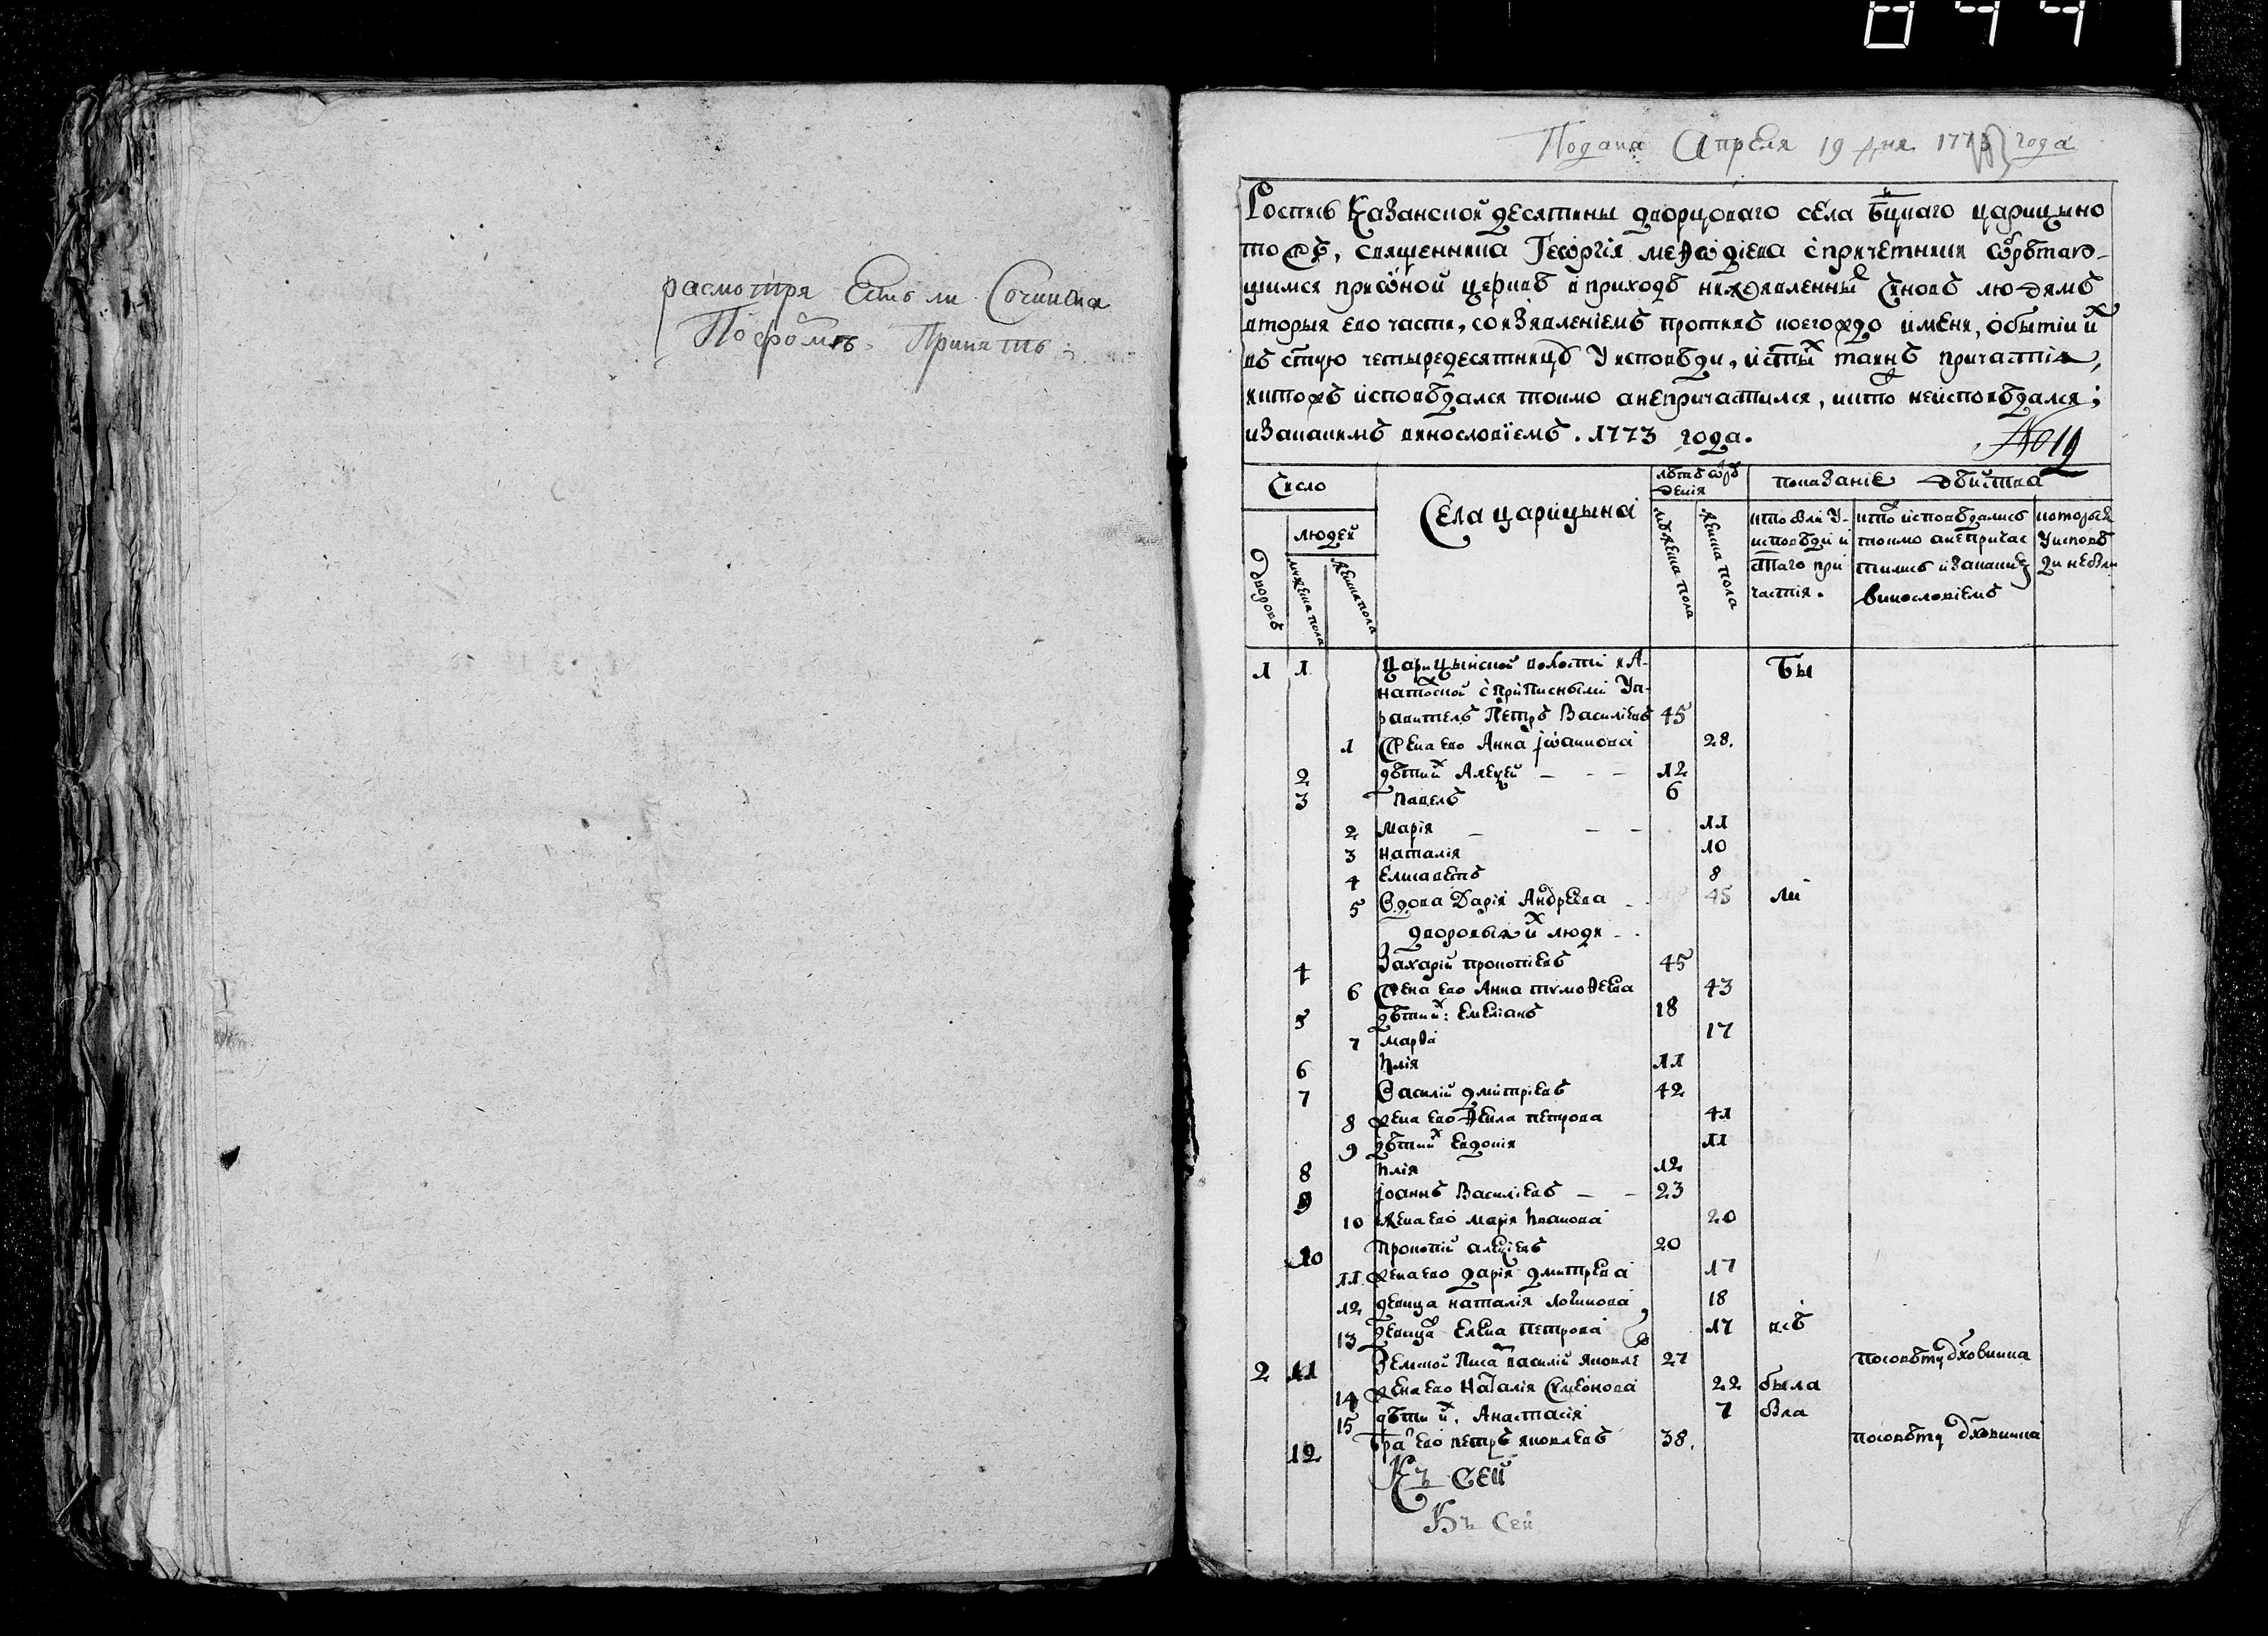 844
расмотря Есть ли Сочинена
По формѣ Принять
Подана Апреля 19 дня 1773 года
Роспись Казанской десятины дворцоваго села цкаго царицыно
тожъ, священника Геѡргія меѳодіева спричетники ѡбрѣтаю-
щимся присѡной церквѣ вприходѣ нижеявленныхъ чиновъ людемъ
изъявленіемъ противъ коегождо имени, обытіи их
въ стую четыредесятницу у исповѣди, и стыхъ таинъ причастія,
иктожъ исповѣдался токмо анепричастился, икто неисповѣдался;
изакакимъ винословіемъ. 1773 года.
No 19
Число
Села царицына
лѣтъ ѿ рож
денія
показаніе дѣйства
дворовъ
людей
мужеска пола
женска пола
мужеска пола
женска пола
кто были у-
исповѣди и
стаго при
частія.
кто исповѣдались
токмо анепричас
тились изакакимъ
винословіемъ
которыя
уисповѣ
ди небыли
1 1 царицынской волости
спрiписными Уп-
равитель Петръ Василіевъ 45 бы
1 Жена ево Анна іѡаннова 28.
2 дѣти их Алеѯей - - - 12
3 Павелъ 6
2 Марія - - - 11
3 наталія 10
4 Елисаветъ 8
5 Вдова Дарія Андреева - 45 ли
дворовыя их люди - -
4 Захарій прокопіевъ 45
6 Жена ево Анна тимоѳеева 43
5 дѣти их: Емеліанъ 18
7 марѳа 17
6 Илія 11
7 Василій дмитріевъ 42
8 жена ево Ѳекла петрова 41
9 дѣти их Евдокія 11
8 Илія 12
9 іоаннъ Василіевъ - - 23
10 жена ево марія Иванова 20
10 Прокопій алеѯіевъ 20
11 жена ево дарія дмитрева 17
12 девица наталія логинова 18
13 девица Елена Петрова 17 всѣ
2 11 Земской Писарь василій яковле 27 посовѣту дховника
14 жена ево Наталія Симеонова 22 была
15 дѣти их. Анастасія 7 бла
12 Братъ ево петръ яковлевъ 38. посовѣту дховника
Къ сей
Къ сей